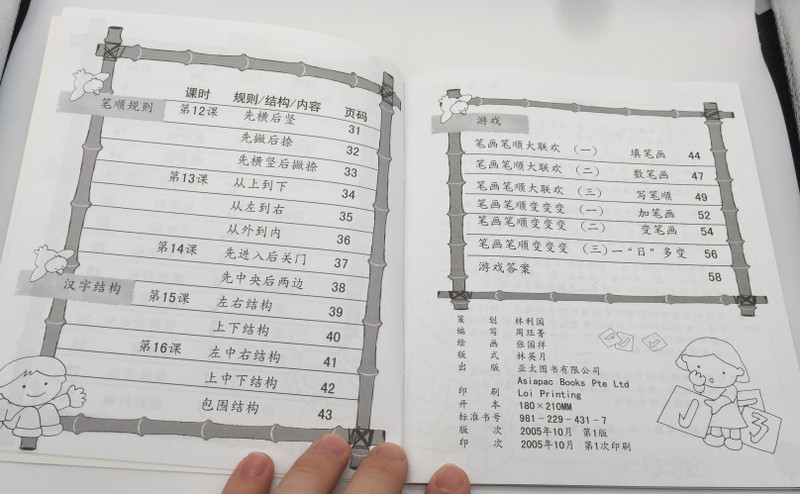 课时 规则/结构/内容 页码
笔顺规则 第12课 先横后竖 31
先撇后捺 32
先横竖后撇捺 33
第13课 从上到下 34
从左到右 35
从外到内 36
第14课 先进入后关门 37
先中央后两边 38
汉字结构 第15课 左右结构 39
上下结构 40
第16课 左中右结构 41
上中下结构 42
包围结构 43
游戏
笔画笔顺大联欢 （一） 填笔画 44
笔画笔顺大联欢 （二） 数笔画 47
笔画笔顺大联欢 （三） 写笔顺 49
笔画笔顺变变变 （一） 加笔画 52
笔画笔顺变变变 （二） 变笔画 54
笔画笔顺变变变 （三）—“日”多变 56
游戏答案 58
策 划 林利国
编 写 周珏菁
绘 画 张国祥
版 式 林英月
出 版 亚太图书有限公司
Asiapac Books Pte Ltd
印 刷 Loi Printing
开 本 180×210MM
标准书号 981-229-431-7
版 次 2005年10月 第1版
印 次 2005年10月 第1次印刷